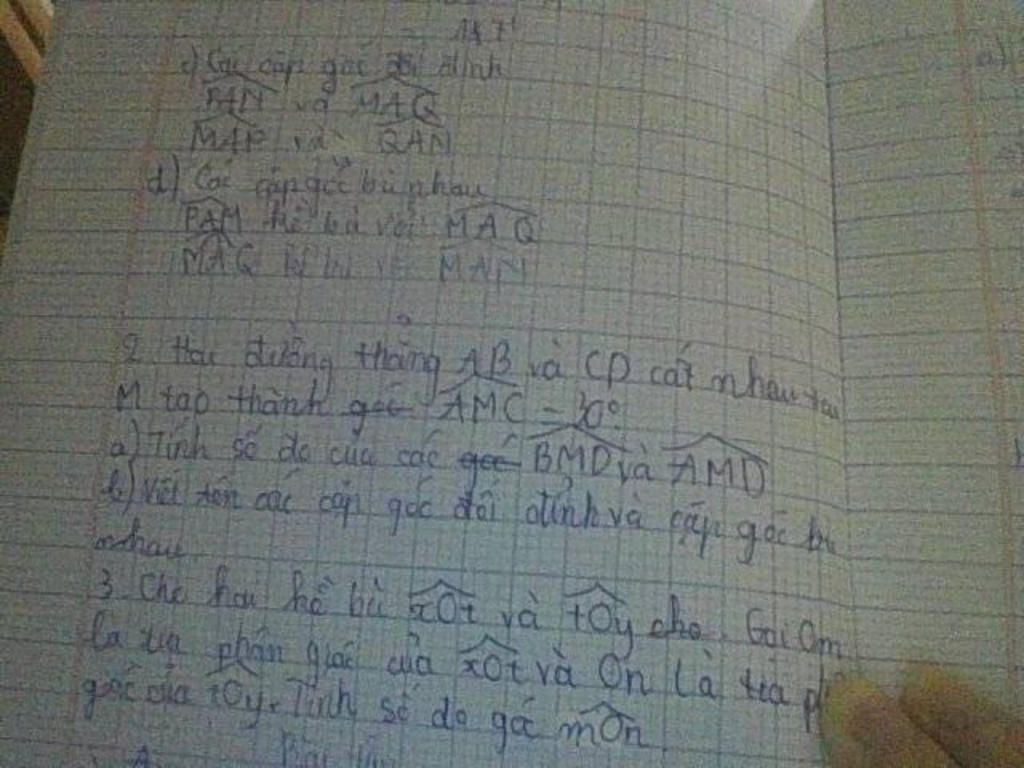 c) Các cặp góc đối đỉnh
PAN và MAQ
MAP và QAN
d) Các cặp góc bù nhau
PAM kề bù với MAQ
MAQ kề bù với MAN
2. Hai đường thẳng AB và CD cắt nhau tại
M tạo thành góc AMC = 30°
a) Tính số đo của các góc BMD và AMD
b) Viết tên các cặp góc đối đỉnh và cặp góc bù
nhau
3. Cho hai kề bù xOt và tOy cho. Gọi Om
là tia phân giác của xOt và On là tia
giác của tOy. Tính số đo góc mOn